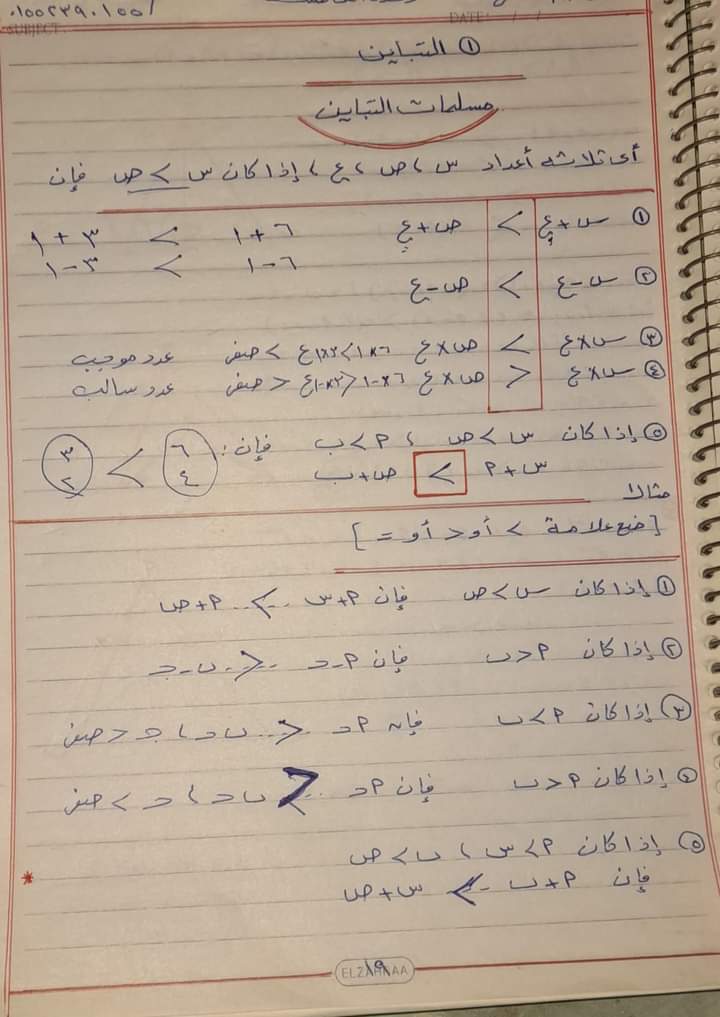 ٠١٠٠٢٣٩٠١٠٠١
SUBJECT: DATE: / /
① التباين
مسلمات التباين
أي ثلاثة أعداد س ، ص ، ع ، إذا كان س > ص فإن
① س + ع > ص + ع ٦ + ١ > ٣ + ١
٦ - ١ > ٣ - ١
② س - ع > ص - ع
③ س × ع > ص × ع ٦ × ١ > ٣ × ١ ع > صفر عدد موجب
④ س × ع < ص × ع ٦ × -١ < ٣ × -١ ع < صفر عدد سالب
⑤ إذا كان س > ص ، أ > ب فإن : ٦ > ٣
س + أ > ص + ب ٤ ٢
مثال
[ضع علامة > أو < أو = ]
① إذا كان س > ص فإن أ + س .. > .. أ + ص
② إذا كان أ < ب فإن أ - ج .. < .. ب - ج
③ إذا كان أ > ب فإن أ ج .. < .. ب ج ، ج < صفر
④ إذا كان أ < ب فإن أ ج .. < .. ب ج ، ج > صفر
⑤ إذا كان أ > س ، ب > ص
فإن أ + ب .. > س + ص
*
ELZAHRAA
١٩